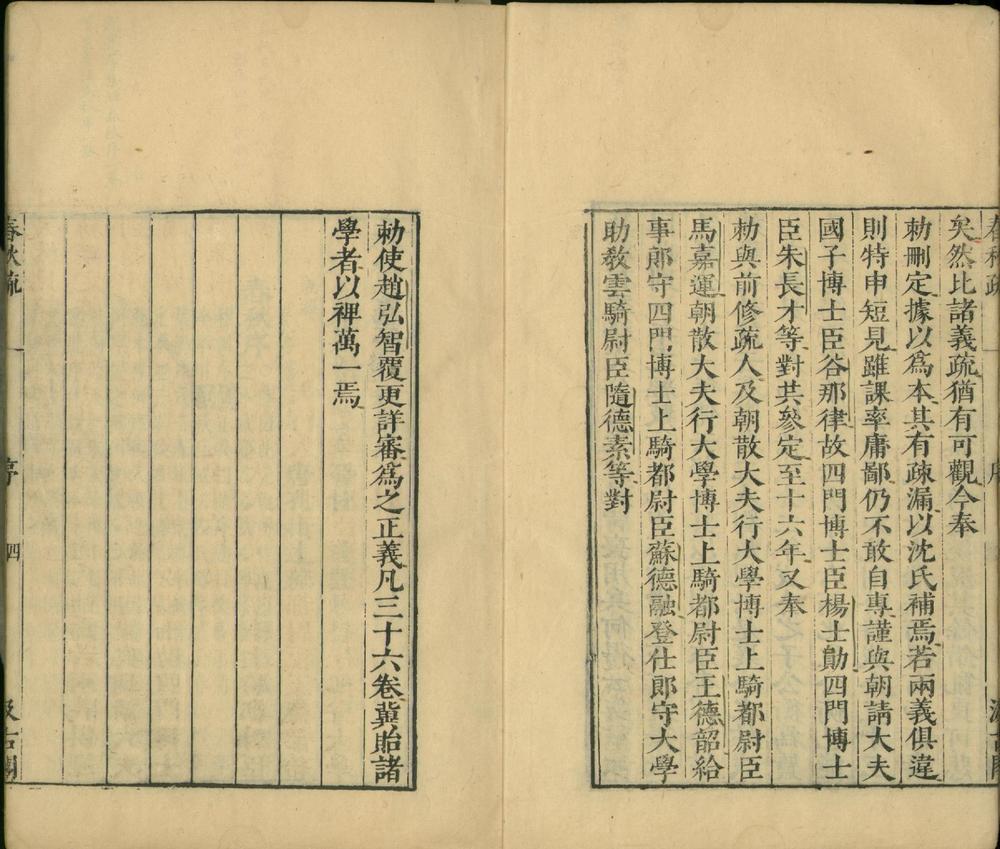 春秋疏
矣然比諸義疏猶有可觀今奉
勑刪定據以爲本其有疎漏以沈氏補焉若兩義俱違
則特申短見雖課率庸鄙仍不敢自專謹與朝請大夫
國子博士臣谷那律故四門博士臣楊士勛四門博士
臣朱長才等對共參定至十六年又奉
勑與前修疏人及朝散大夫行大學博士上騎都尉臣
馬嘉運朝散大夫行大學博士上騎都尉臣王德韶給
事郎守四門博士上騎都尉臣蘇德融登仕郎守大學
助敎雲騎尉臣隨德素等對
勑使趙弘智覆更詳審爲之正義凡三十六卷冀貽諸
學者以裨萬一焉
春秋疏 序 四 汲古閣